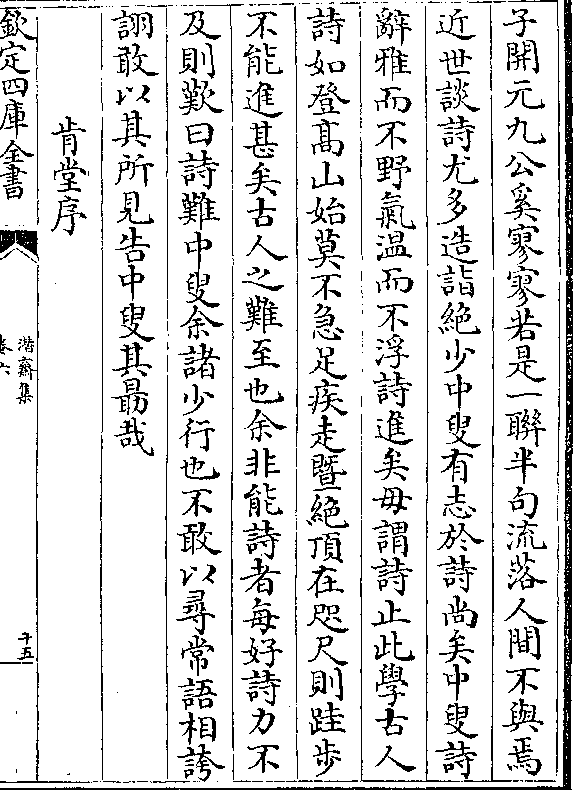 子開元九公奚寥寥若是一聯半句流落人間不與焉
近世談詩尤多造詣絶少中叟有志於詩尚矣中叟詩
辭雅而不野氣温而不浮詩進矣毋謂詩止此學古人
詩如登高山始莫不急足疾走暨絶頂在咫尺則跬歩
不能進甚矣古人之難至也余非能詩者每好詩力不
及則歎曰詩難中叟余諸少行也不敢以尋常語相誇
詡敢以其所見告中叟其勗哉
肯堂序
欽定四庫全書
潛齋集
卷六
十五